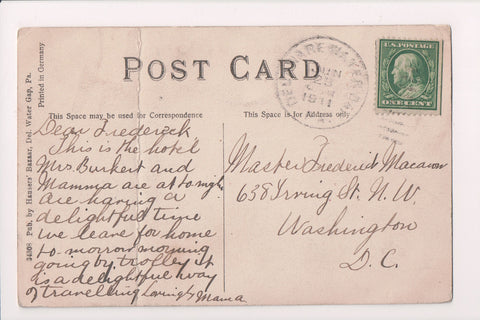 POST CARD
This Space may be used for Correspondence
This Space is for Address only
3408 Pub. by Hausers' Bazaar, Del. Water Gap, Pa. Printed in Germany
DELAWARE WATER GAP
JUN
1911
U.S. POSTAGE
ONE CENT
Dear Frederick
This is the hotel
Mrs. Burkert and
Mamma are at to
are having a
delightful time
we leave for home
to morrow morning
going by trolley it
is a delightful way
of travelling Lovingly Mama
Master Frederick
638 Irving St. N.W.
Washington
D.C.